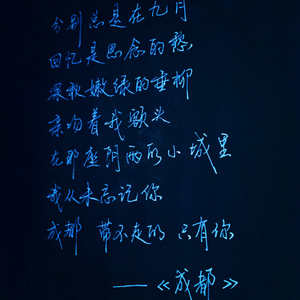 分别总是在九月
回忆是思念的愁
深秋嫩绿的垂柳
亲吻着我额头
在那座阴雨的小城里
我从未忘记你
成都 带不走的 只有你
——《成都》